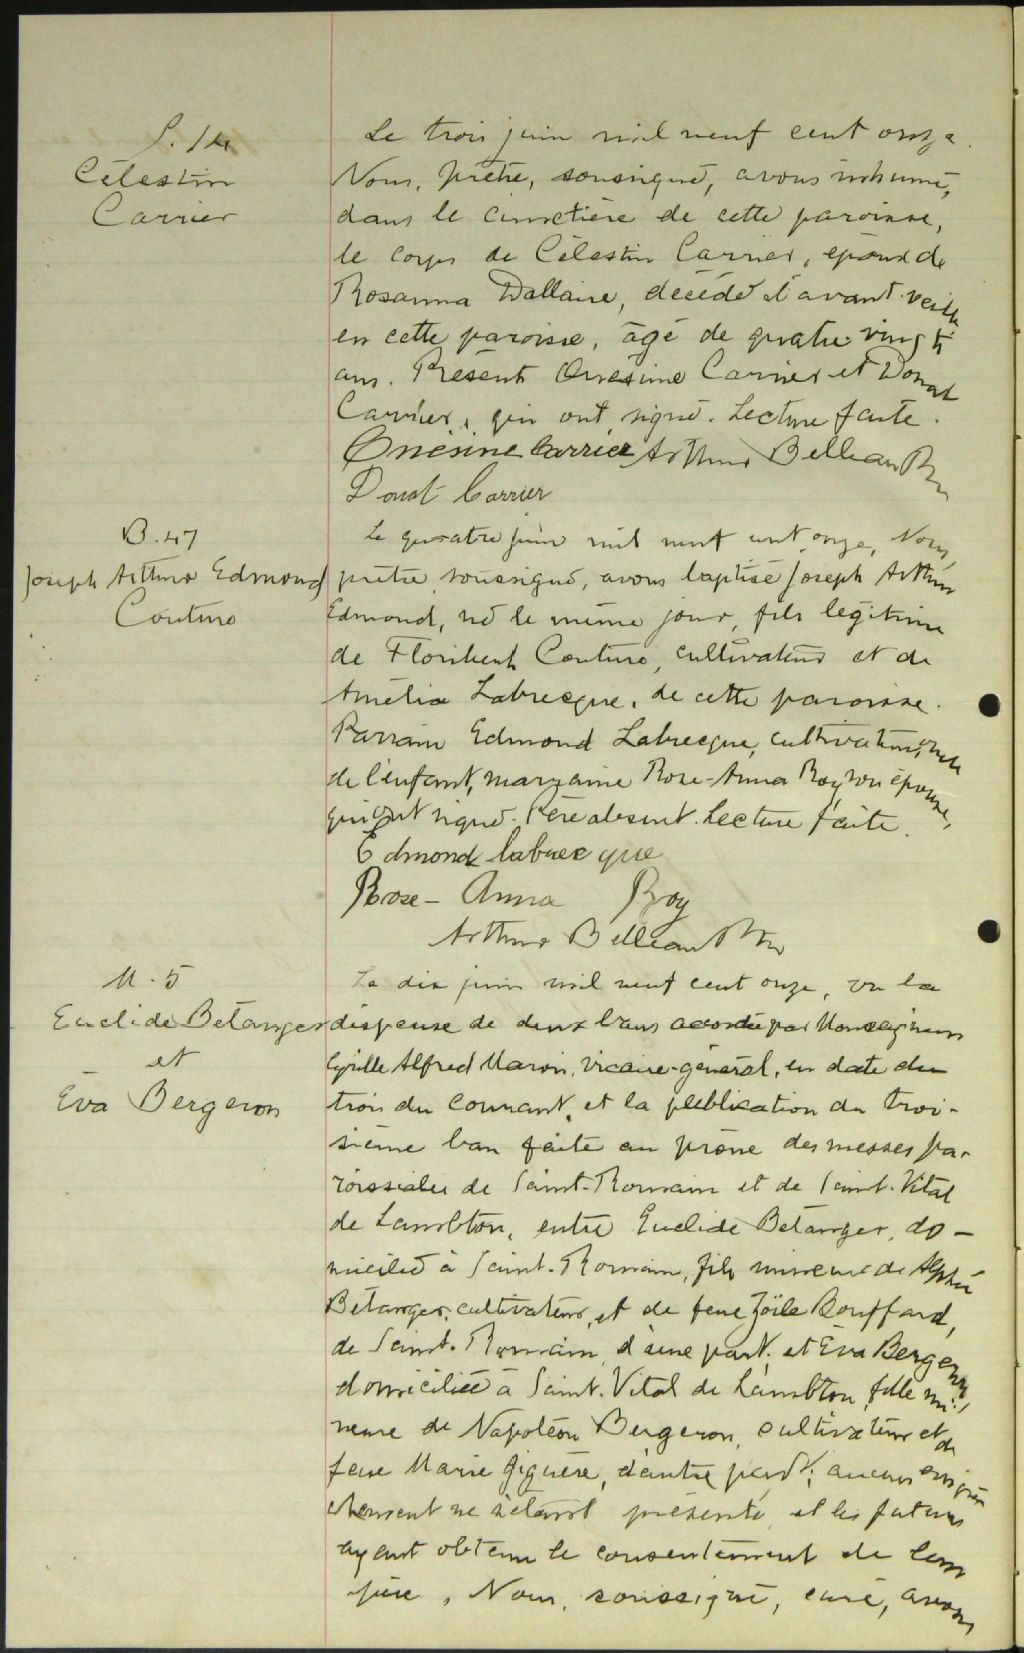 S. 14
Célestin
Carrier
Le trois juin mil neuf cent onze.
Nous, prêtre, soussigné, avons inhumé,
dans le cimetière de cette paroisse,
le corps de Célestin Carrier, époux de
Rosanna Dallaire, décédé l'avant-veille
en cette paroisse, âgé de quatre-vingts
ans. Présents Onésime Carrier et Donat
Carrier, qui ont signé. Lecture faite.
Onésine Carrier Arthur Belleau Ptre
Donat Carrier
B. 47
Joseph Arthur Edmond
Couture
Le quatre juin mil neuf cent onze, Nous,
prêtre soussigné, avons baptisé Joseph Arthur
Edmond, né le même jour, fils légitime
de Floribert Couture, cultivateur et de
Amélia Labrecque, de cette paroisse.
Parrain Edmond Labrecque, cultivateur, oncle
de l'enfant, marraine Rose-Anna Roy son épouse,
qui ont signé. Père absent. Lecture faite.
Edmond Labrecque
Rose-Anna Roy
Arthur Belleau Ptre
M. 5
Euclide Bélanger
et
Éva Bergeron
Le dix juin mil neuf cent onze, vu la
dispense de deux bans accordée par Monseigneur
Cyrille Alfred Marois, vicaire-général, en date du
trois du courant, et la publication du troi-
sième ban faite au prône des messes pa-
roissiales de Saint-Romain et de Saint-Vital
de Lambton, entre Euclide Bélanger, do-
micilié à Saint-Romain, fils mineur de Alphée
Bélanger, cultivateur, et de feue Zoïle Bouffard,
de Saint-Romain, d'une part; et Éva Bergeron,
domiciliée à Saint-Vital de Lambton, fille mi-
neure de Napoléon Bergeron, cultivateur et de
feue Marie Giguère, d'autre part; aucun empê-
chement ne s'étant présenté, et les futurs
ayant obtenu le consentement de leur
père, Nous, soussigné, curé, avons